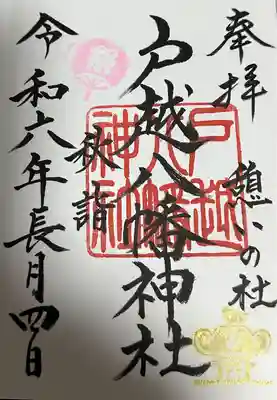 奉拝
憩いの杜
戸越八幡神社
戸越八幡神社
秋詣
令和六年長月四日